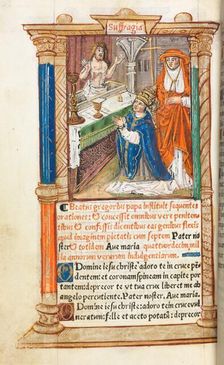 Suffragia
Beatus gregorius papa instituit sequentes
orationes: & concessit omnibus vere peniten
tibus & confessis dicentibus eas genibus flexis
apud imaginem pietatis cum septem Pater no
ster & totidem Aue maria quatuordecim mi
lia annorum verarum indulgentiarum.
O Domine iesu christe adoro te in cruce pē
dentem: et coronam spineam in capite por
tantem: deprecor te vt tua crux liberet me ab
angelo percutiente. Pater noster. Aue maria.
O Domine iesu christe adoro te in cruce vul
neratum: felle et aceto potatū: deprecor